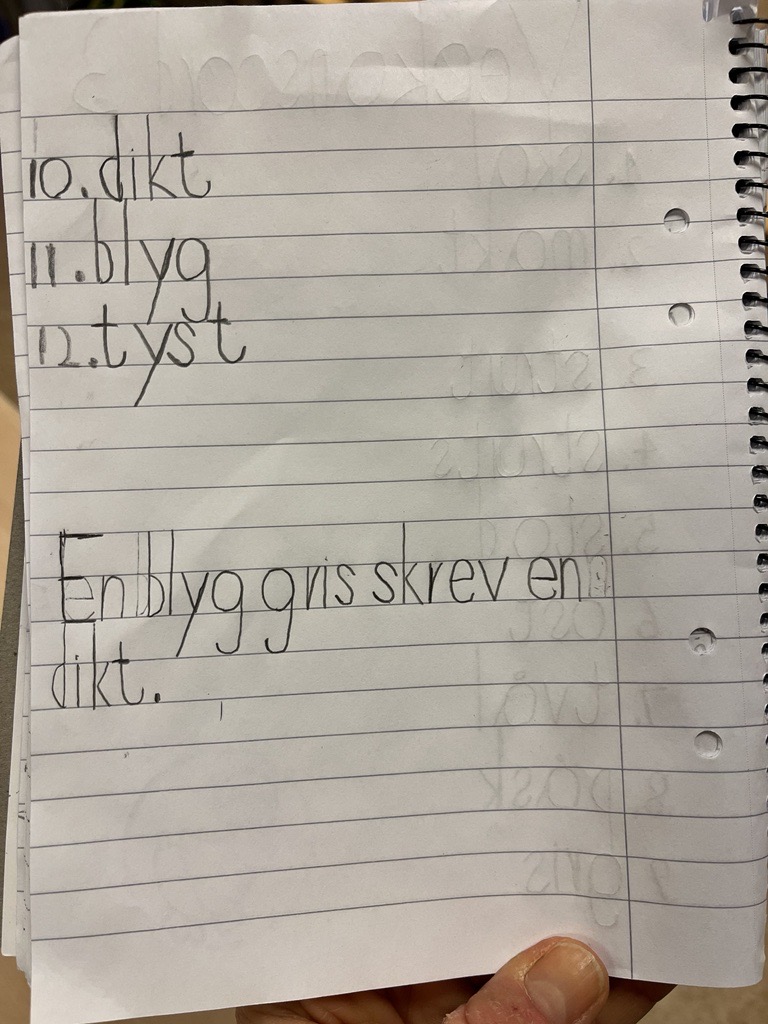 10. dikt
11. blyg
12. tyst
En blyg gris skrev en
dikt.